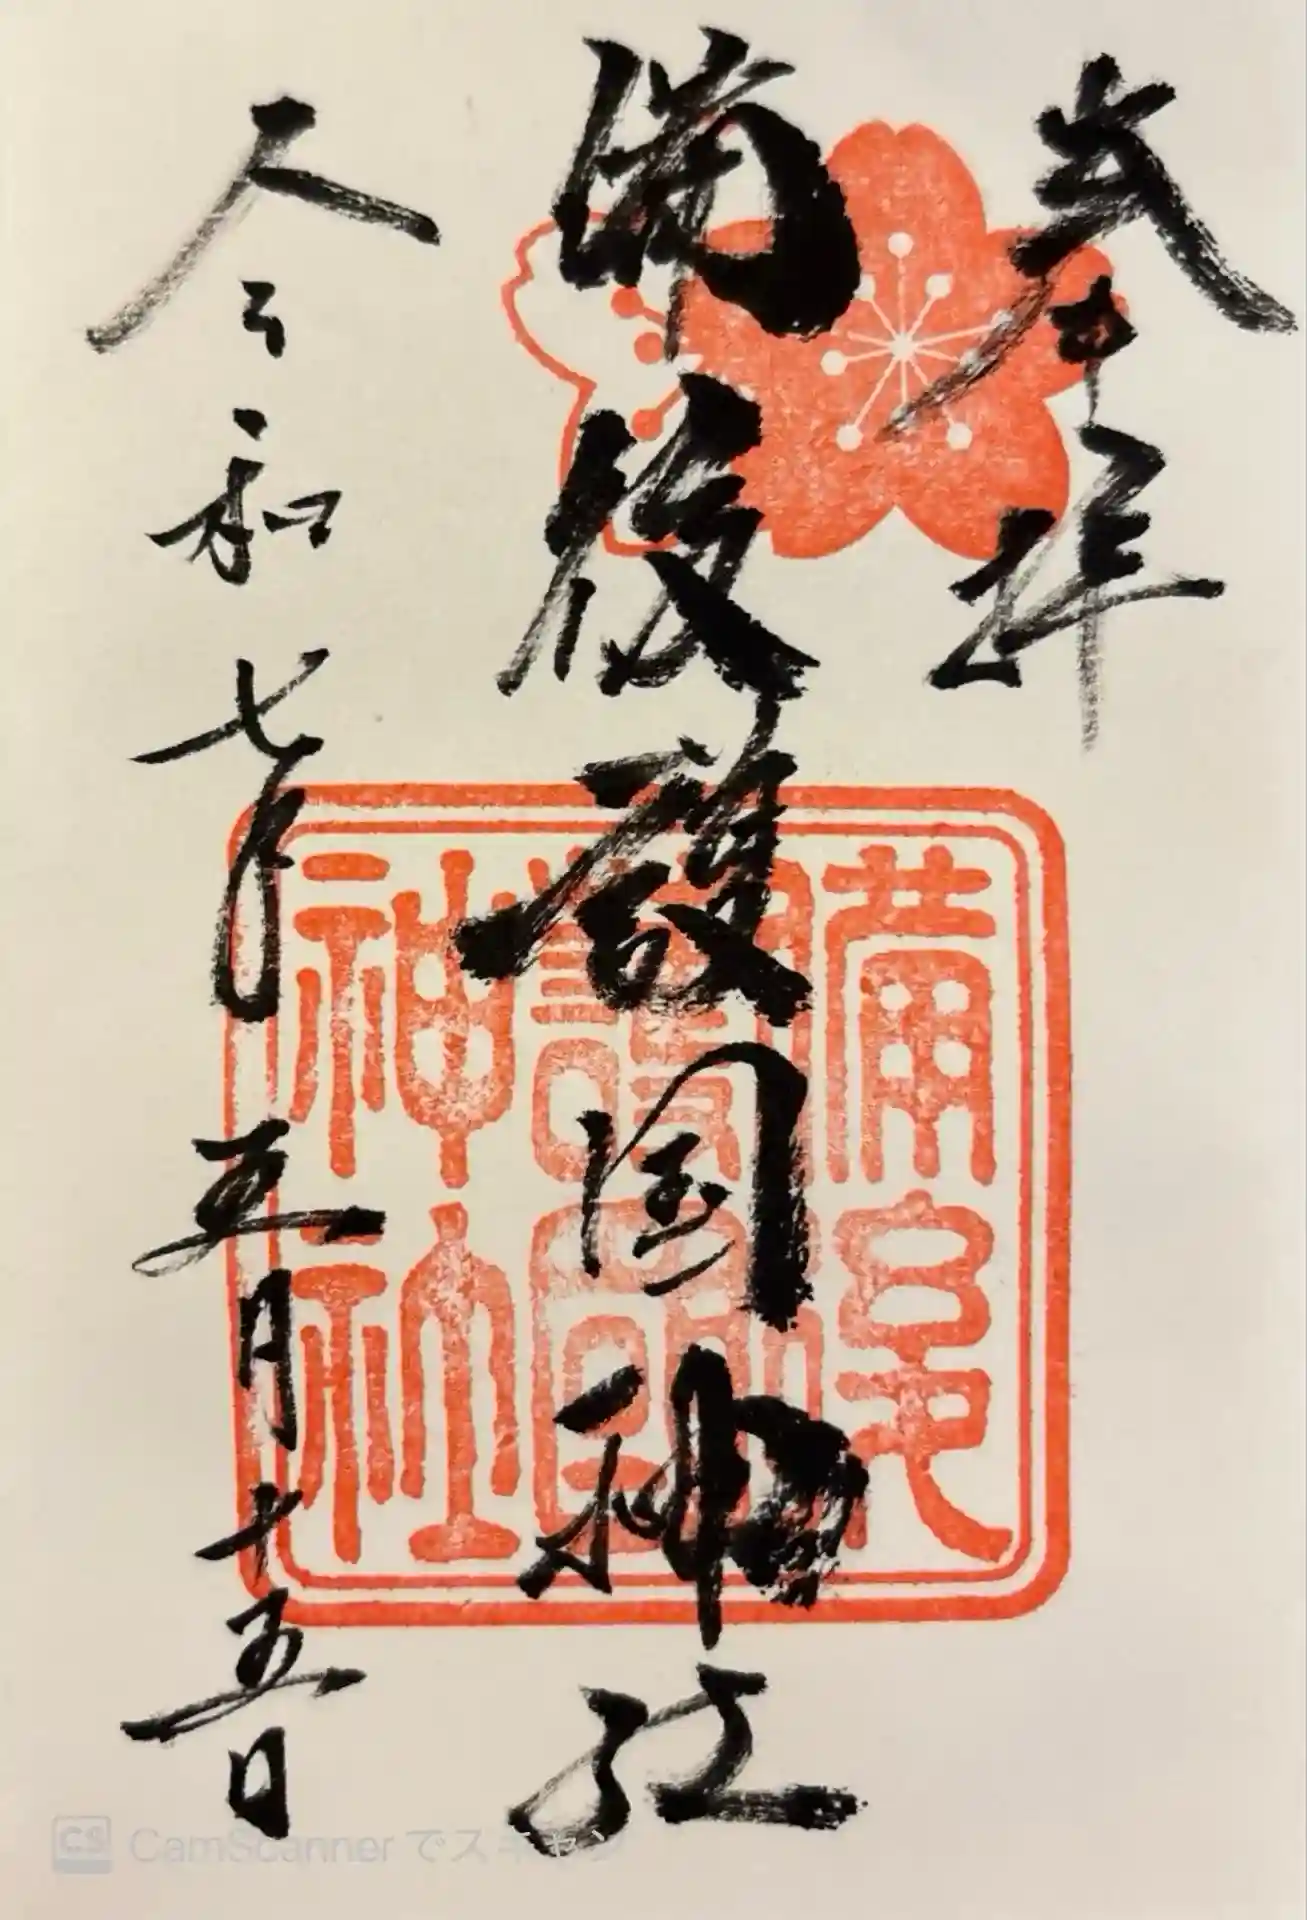 奉拝
備後護国神社
令和七年
五月十五日
備後
護國
神社
CS CamScanner でスキャン